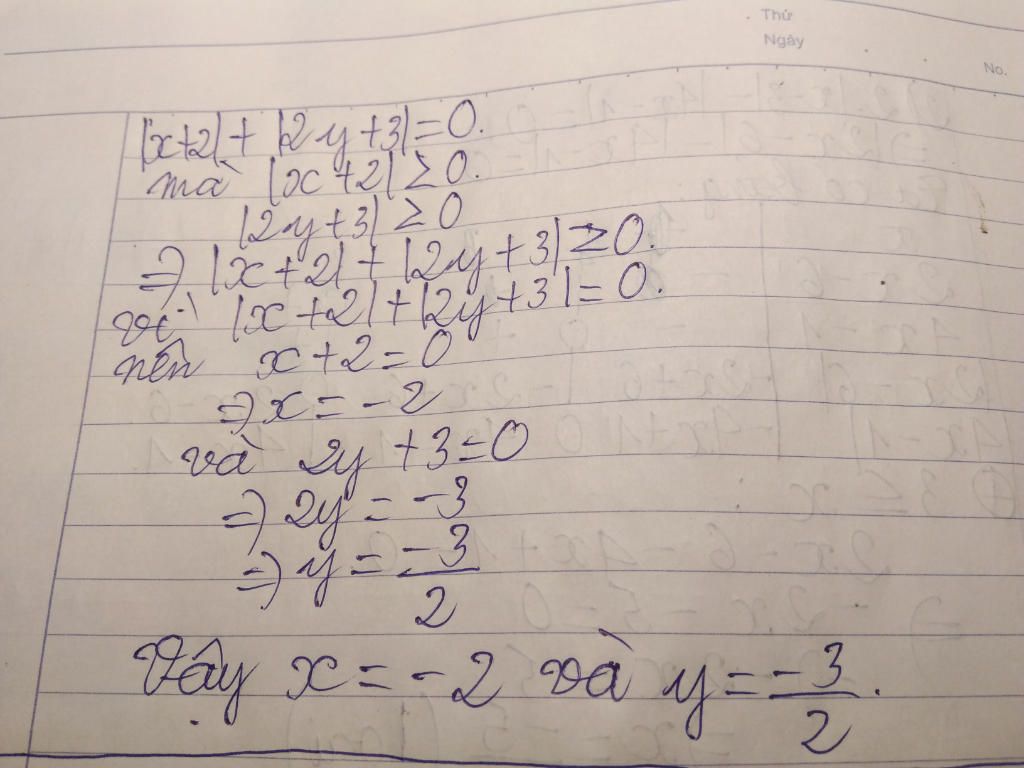 Thứ
Ngày
No.
|x+2| + |2y+3| = 0.
mà |x+2| ≥ 0.
|2y+3| ≥ 0
=> |x+2| + |2y+3| ≥ 0.
vì |x+2| + |2y+3| = 0.
nên x+2=0
=> x = -2
và 2y+3=0
=> 2y = -3
=> y = -3/2
Vậy x = -2 và y = -3/2.